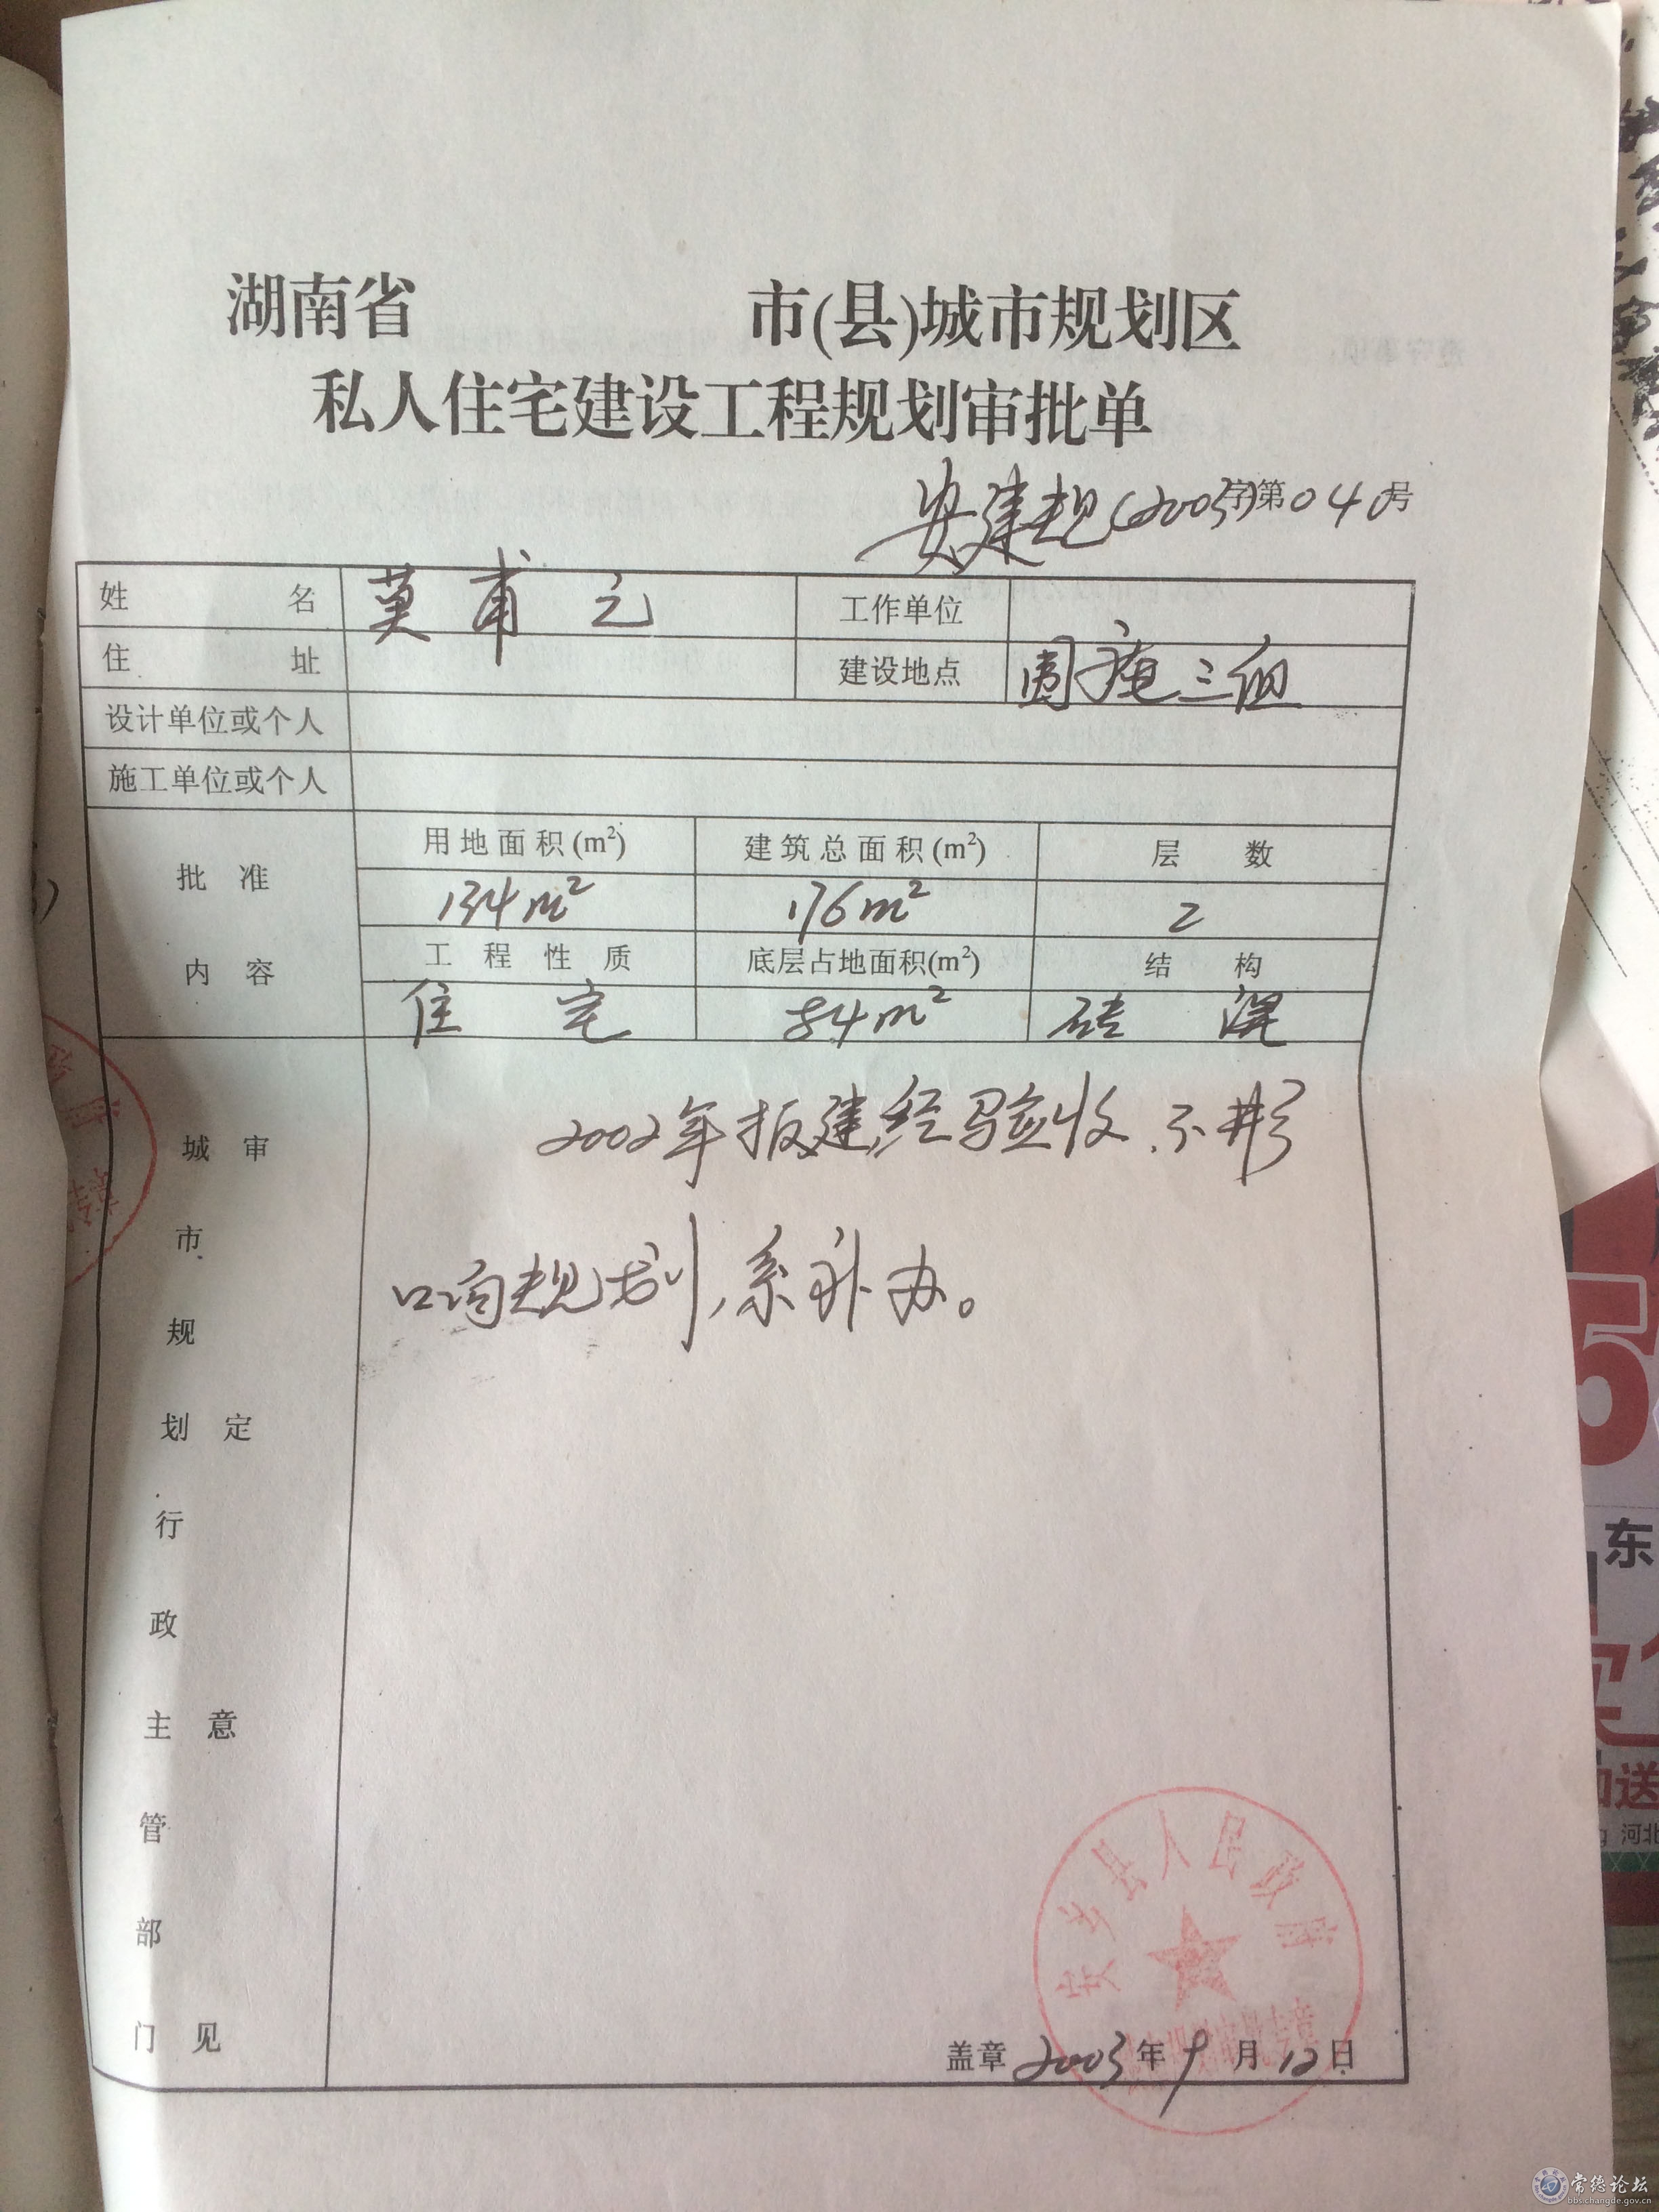 湖南省 市(县)城市规划区
私人住宅建设工程规划审批单
安建规(2003)字第040号
姓名 莫甫之 工作单位
住址 建设地点 围庵三组
设计单位或个人
施工单位或个人
批准内容
用地面积(m²) 建筑总面积(m²) 层数
134m² 176m² 2
工程性质 底层占地面积(m²) 结构
住宅 84m² 砖混
城市规划行政主管部门审定意见
2002年报建,经验收,不影
响规划,系补办。
安乡县人民政府
盖章 2003年9月12日
东
加送
河北
常德论坛
bbs.changde.gov.cn